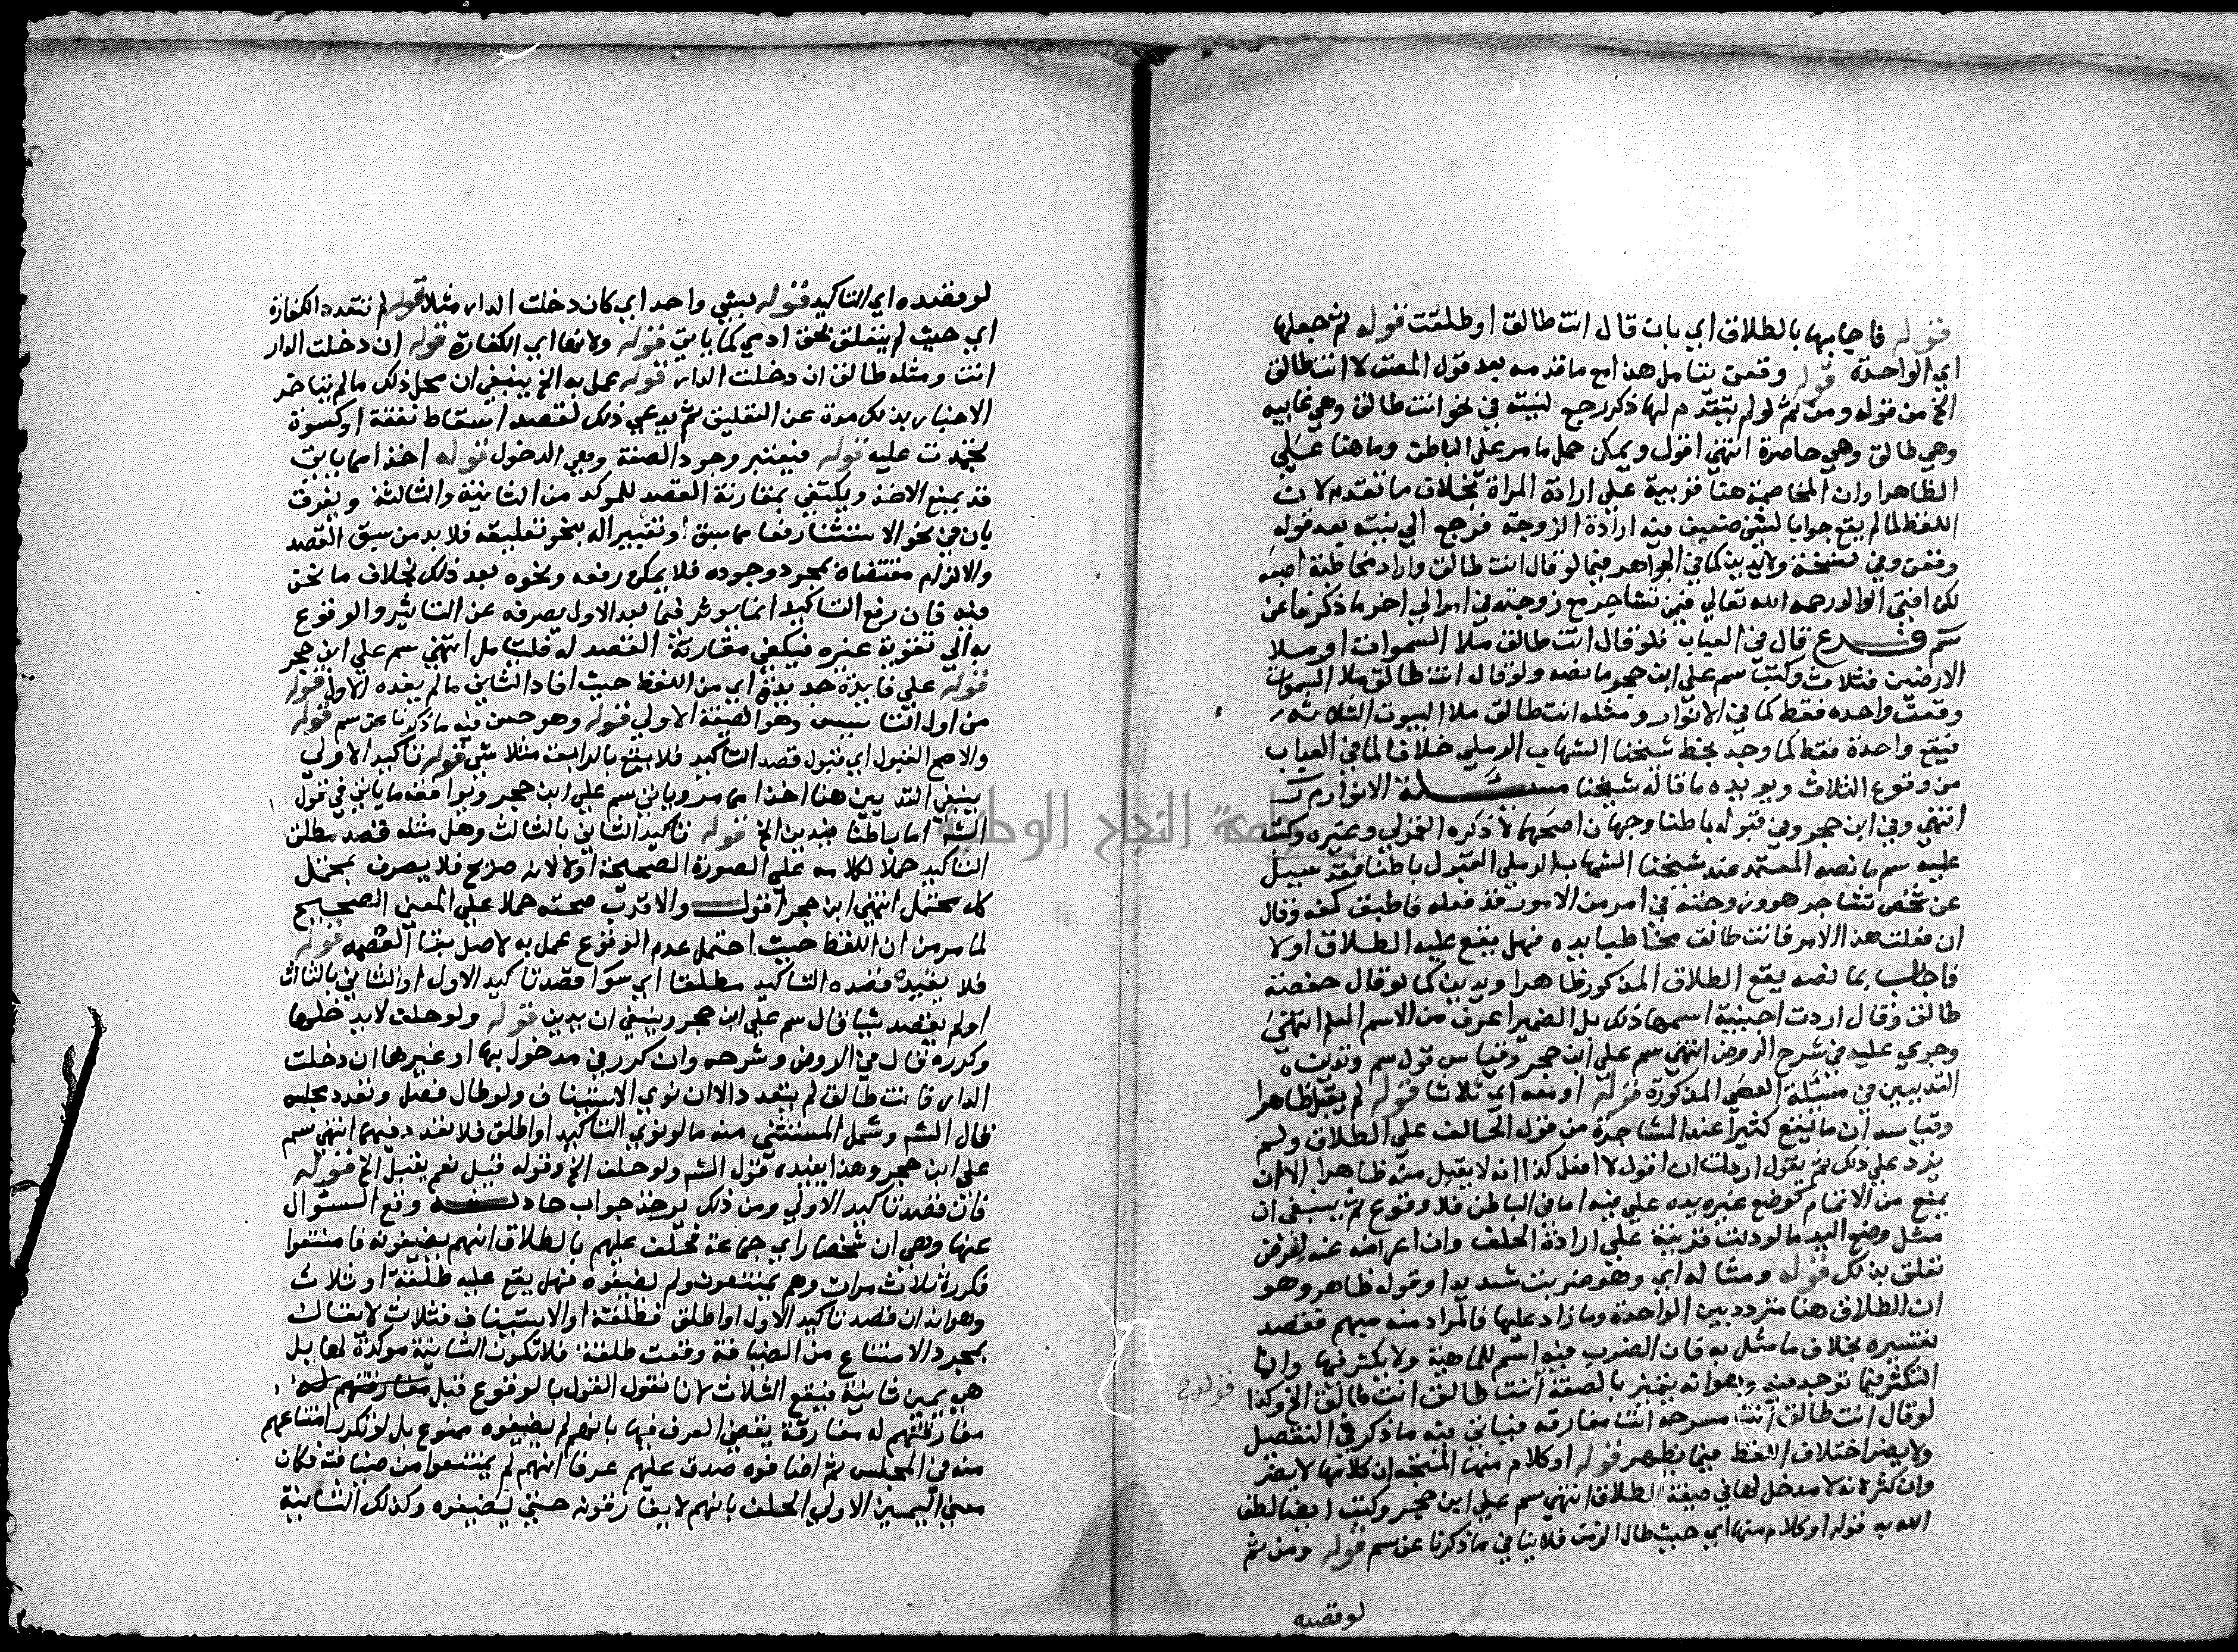 قوله فاجابها بالطلاق اي بان قال انت طالق او طلقت قوله ثم جعلها
اي الواحدة قوله وقعن يتامل هذا مع ما قدمه بعد قول المصنف لا انت طالق
الخ من قوله ومن ثم لو لم يتقدم لها ذكر رجع لنيته في نحو انت طالق وهي غايبه
وهي طالق وهي حاضرة انتهي اقول ويمكن حمل ما مر علي الباطن وما هنا علي
الظاهر او ان المخاصمة هنا قرينة علي ارادة المراة بخلاف ما تقدم لان
اللفظ لما لم يقع جوابا لشي ضعيف فيه ارادة الزوجة فرجع الي نيته بعد قوله
وقعن وفي نسخة ولا يدين كما في الجواهر فيما لو قال انت طالق واراد مخاطبة اصبعه
لكن افتي الوالد رحمه الله تعالي فيمن تشاجر مع زوجته في امر الي اخر ما ذكرناه عن
سم فرع قال في العباب فلو قال انت طالق ملا السموات او ملا
الارضين فثلاث وكتب سم علي ابن حجر ما نصه ولو قال انت طالق ملا السموات
وقعت واحده فقط كما في الانوار ومثله انت طالق ملا البيوت الثلاثة
فيقع واحدة فقط كما وجد بخط شيخنا الشهاب الرملي خلافا لما في العباب
من وقوع الثلاث ويويده ما قاله شيخنا مسئلة الانوار
انتهي وفي ابن حجر وفي قبوله باطنا وجهان اصحهما لا ذكره الغزولي وغيره وكتب
عليه سم ما نصه المعتمد عند شيخنا الشهاب الرملي القبول باطنا فقد سيل
عن شخص تشاجر هو وزوجته في امر من الامور قد فعله فاطبق كفه وقال
ان فعلت هذا الامر فانت طالق مخاطبا يده فهل يقع عليه الطلاق اولا
فاجاب بما نصه يقع الطلاق المذكور ظاهرا ويدين كما لو قال حفصة
طالق وقال اردت اجنبية اسمها ذلك بل الضمير اعرف من الاسم العلم انتهي
وجري عليه في شرح الروض انتهي سم علي ابن حجر وقياس قول سم
التديين في مسئلة العصي المذكورة قوله او معه اي ثلاثا قوله لم يقبل ظاهرا
وقياسه ان ما يقع كثيرا عند المشاجرة من قول الحالف علي الطلاق ولم
يزد علي ذلك ثم يقول اردت ان اقول لا افعل كذا انه لا يقبل منه ظاهرا الا ان
يمنع من الاتمام كوضع غيره يده علي فيه اما في الباطن فلا وقوع ثم ينبغي ان
مثل وضع اليد ما لو دلت قرينة علي ارادة الحلف وان اعراضه عنه لغرض
تعلق بذلك قوله ومثاله اي وهو ضربت شديدا وقوله ظاهر وهو
ان الطلاق هنا متردد بين الواحدة وما زاد عليها فالمراد منه مبهم فقصد
تفسيره بخلاف ما مثل به فان الضرب فيه اسم للماهية ولا يكثر فيها وان
التكثر فيما توجد فيه وهو انه يتميز بالصفة انت طالق انت طالق الخ وكذا
لو قال انت طالق انت مسرحه انت مفارقه فياتي فيه ما ذكر في التفصيل
ولا يضر اختلاف اللفظ فيما يظهر قوله او كلام منها المتجه ان كلامها لا يضر
وان كثر لانه لا مدخل لها في صيغة الطلاق انتهي سم علي ابن حجر وكتب ايضا لطف
الله به قوله او كلام منها اي حيث طال الزمن فلا ينافي ما ذكرنا عن سم قوله ومن ثم
لو قصده
لو قصده اي التاكيد قوله بشي واحد اي كان دخلت الدار مثلا قوله لم تتعدد الكفارة
اي حيث لم يتعلق بحق ادمي كما ياتي قوله ولانها اي الكفارة قوله ان دخلت الدار
انت ومثله طالق ان دخلت الدار قوله عمل به الخ ينبغي ان محل ذلك ما لم يتاخر
الاخبار بذلك مدة عن التعليق ثم يدعي ذلك لقصد اسقاط نفقة او كسوة
تجمدت عليه قوله فيعتبر وجود الصفة وهي الدخول قوله اخذا مما ياتي
قد يمنع الاخذ ويكتفي بمقارنة القصد للموكد من الثانية والثالثة ويفرق
بان في نحو الاستثنا رفعا مما سبق او تغييرا له بنحو تعليقه فلا بد من سبق القصد
والا لزم مقتضاه بمجرد وجوده فلا يمكن رفعه ونحوه بعد ذلك بخلاف ما نحن
فيه فان رفع التاكيد انما يوثر فيما بعد الاول بصرفه عن التاثير والوقوع
به الي تقوية غيره فيكفي مقارنة القصد له فليتامل انتهي سم علي ابن حجر
قوله علي فايدة جديدة اي من اللفظ حيث افاد الثاني ما لم يفده الاول قوله
من اول التاسيس وهو الصفة الاولي قوله وهو حسن فيه ما ذكرنا عن سم قوله
والاصح القبول اي قبول قصد التاكيد فلا يقع بالرابعة مثلا شي قوله تاكيد الاولي
ينبغي التديين هنا اخذا مما مر وياتي سم علي ابن حجر ويوافقه ما ياتي في قول
الشم اما باطنا فيدين الخ قوله تاكيد الثاني بالثالث وهل مثله قصد مطلق
التاكيد حملا لكلامه علي الصورة الصحيحة اولا لانه صريح فلا يصرف بمحتمل
كل محتمل انتهي ابن حجر اقول والاقرب صحته حملا علي المعني الصحيح
لما مر من ان اللفظ حيث احتمل عدم الوقوع عمل به لاصل بقا العصمه قوله
فلا يفيده قصده التاكيد مطلقا اي سوا قصد تاكيد الاول او الثاني بالثالث
اولم يقصد شيا قال سم علي ابن حجر وينبغي ان يدين قوله ولو حلف لا يدخلها
وكرره قال في الروض وشرحه وان كرر في مدخول بها او غيرها ان دخلت
الدار فانت طالق لم يتعدد الا ان نوي الاستيناف ولو طال فصل وتعدد مجلس
قال الشم وشمل المستثني منه ما لو نوي التاكيد او اطلق فلا تعدد فيهما انتهي سم
علي ابن حجر وهذا يفيده قول الشم ولو حلف الخ وقوله قبيل نعم يقبل الخ قوله
فان قصد تاكيد الاولي ومن ذلك يوخذ جواب حادثة وقع السوال
عنها وهي ان شخصا راي جماعة فحلف عليهم بالطلاق انهم يضيفونه فامتنعوا
فكرره ثلاث مرات وهم يمتنعون ولم يضيفوه فهل يقع عليه طلقة او ثلاث
وهو انه ان قصد تاكيد الاول او اطلق فطلقة او الاستيناف فثلاث لا يقال
بمجرد الامتناع من الضيافة وقعت طلقة فلا تكون الثانية موكدة لها بل
هي يمين ثانية فيقع الثلاث لانا نقول القول بالوقوع قبل مفارقتهم له
مفارقتهم له مفارقة يقضي العرف فيها بانهم لم يضيفوه ممنوع بل لو تكرر امتناعهم
منه في المجلس ثم اضافوه صدق عليهم عرفا انهم لم يمتنعوا من ضيافته فكان
معني اليمين الاولي الحلف بانهم لا يفارقونه حتي يضيفوه وكذلك الثانية
جامعة النجاح الوطنية